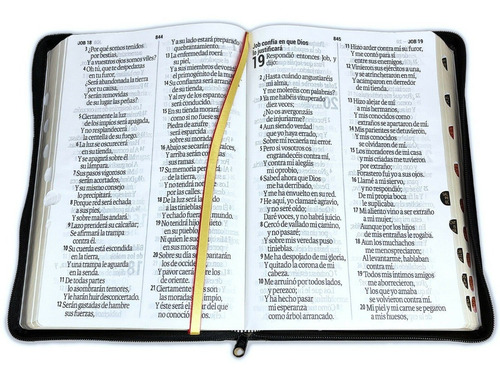 JOB 18
844
3 ¿Por qué somos tenidos
por bestias,
Y a vuestros ojos somos viles?
4 Oh tú, que te despedazas
en tu furor,
¿Será abandonada la tierra
por tu causa,
Y serán removidas
de su lugar las peñas?
5 Ciertamente la luz
de los impíos será apagada,
Y no resplandecerá
la centella de su fuego.
6 La luz se oscurecerá
en su tienda,
Y se apagará sobre él
su lámpara.
7 Sus pasos vigorosos
serán acortados,
Y su mismo consejo
lo precipitará.
8 Porque red será echada
a sus pies,
Y sobre mallas andará.
9 Lazo prenderá su calcañar;
Se afirmará la trampa
contra él.
10 Su cuerda está escondida
en la tierra,
Y una trampa le aguarda
en la senda.
11 De todas partes
lo asombrarán temores,
Y le harán huir desconcertado.
12 Serán gastadas de hambre
sus fuerzas,
Y a su lado estará preparado
quebrantamiento.
13 La enfermedad roerá
su piel,
Y a sus miembros
el primogénito de la
14 Su confianza será
de su tienda,
Y al rey de los
será conducido.
15 En su tienda
como si no fuese
Piedra de azufre
será esparcida
sobre su morada.
16 Abajo se secarán
Y arriba serán
sus ramas.
17 Su memoria
de la tierra,
Y no tendrá
por las calles.
18 De la luz será
a las tinieblas,
Y echado fuera
19 No tendrá hijo
en su pueblo,
Ni quien le
en sus moradas.
20 Sobre su día se
los de occidente,
Y pavor caerá
de oriente.
21 Ciertamente
las moradas impío,
Y éste será del que
no conoció
845
JOB 19
Job confía en que Dios
lo justificará
19 Respondió entonces Job, y
dijo:
2 ¿Hasta cuándo angustiaréis
mi alma,
Y me moleréis con palabras?
3 Ya me habéis vituperado
diez veces;
¿No os avergonzáis
de injuriarme?
4 Aun siendo verdad
que yo haya errado,
Sobre mí recaería mi error.
5 Pero si vosotros os
engrandecéis contra mí,
Y contra mí alegáis
mi oprobio,
6 Sabed ahora que Dios
me ha derribado,
Y me ha envuelto en su red.
7 He aquí, yo clamaré agravio,
y no seré oído;
Daré voces, y no habrá juicio.
8 Cercó de vallado mi camino,
y no pasaré;
Y sobre mis veredas puso
tinieblas.
9 Me ha despojado de mi gloria,
Y quitado la corona de mi
cabeza.
10 Me arruinó por todos lados,
y perezco;
Y ha hecho pasar
mi esperanza
como árbol arrancado.
11 Hizo arder contra mí su furor,
Y me contó para sí
entre sus enemigos.
12 Vinieron sus ejércitos a una,
y se atrincheraron en mí,
Y acamparon en derredor
de mi tienda.
13 Hizo alejar de mí
a mis hermanos,
Y mis conocidos
como extraños
se apartaron de mí.
14 Mis parientes se detuvieron,
Y mis conocidos
se olvidaron de mí.
15 Los moradores de mi casa
y mis criadas me tuvieron
por extraño;
Forastero fui yo a sus ojos.
16 Llamé a mi siervo,
y no respondió;
De mi propia boca
le suplicaba.
17 Mi aliento vino a ser extraño
a mi mujer,
Aunque por los hijos
de mis entrañas le rogaba.
18 Aun los muchachos
me menospreciaron;
Al levantarme, hablaban
contra mí.
19 Todos mis íntimos amigos
me aborrecieron,
Y los que yo amaba
se volvieron contra mí.
20 Mi piel y mi carne se pegaron
a mis huesos,